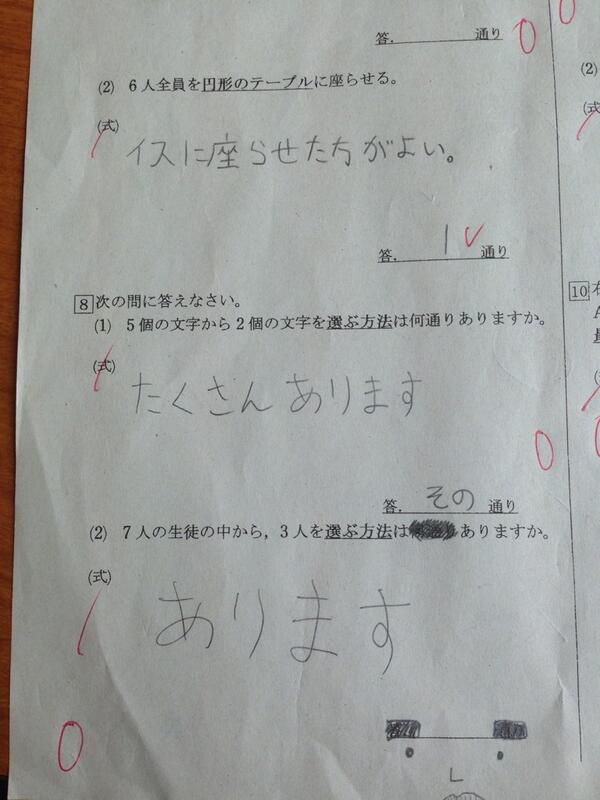 答. 通り 0
(2) 6人全員を円形のテーブルに座らせる。
(式)
イスに座らせた方がよい。
答. 1 通り
8 次の問に答えなさい。
(1) 5個の文字から2個の文字を選ぶ方法は何通りありますか。
(式)
たくさんあります
0
答. その 通り
(2) 7人の生徒の中から，3人を選ぶ方法は ありますか。
(式)
あります
0
0
(2)
(式
10 右
A